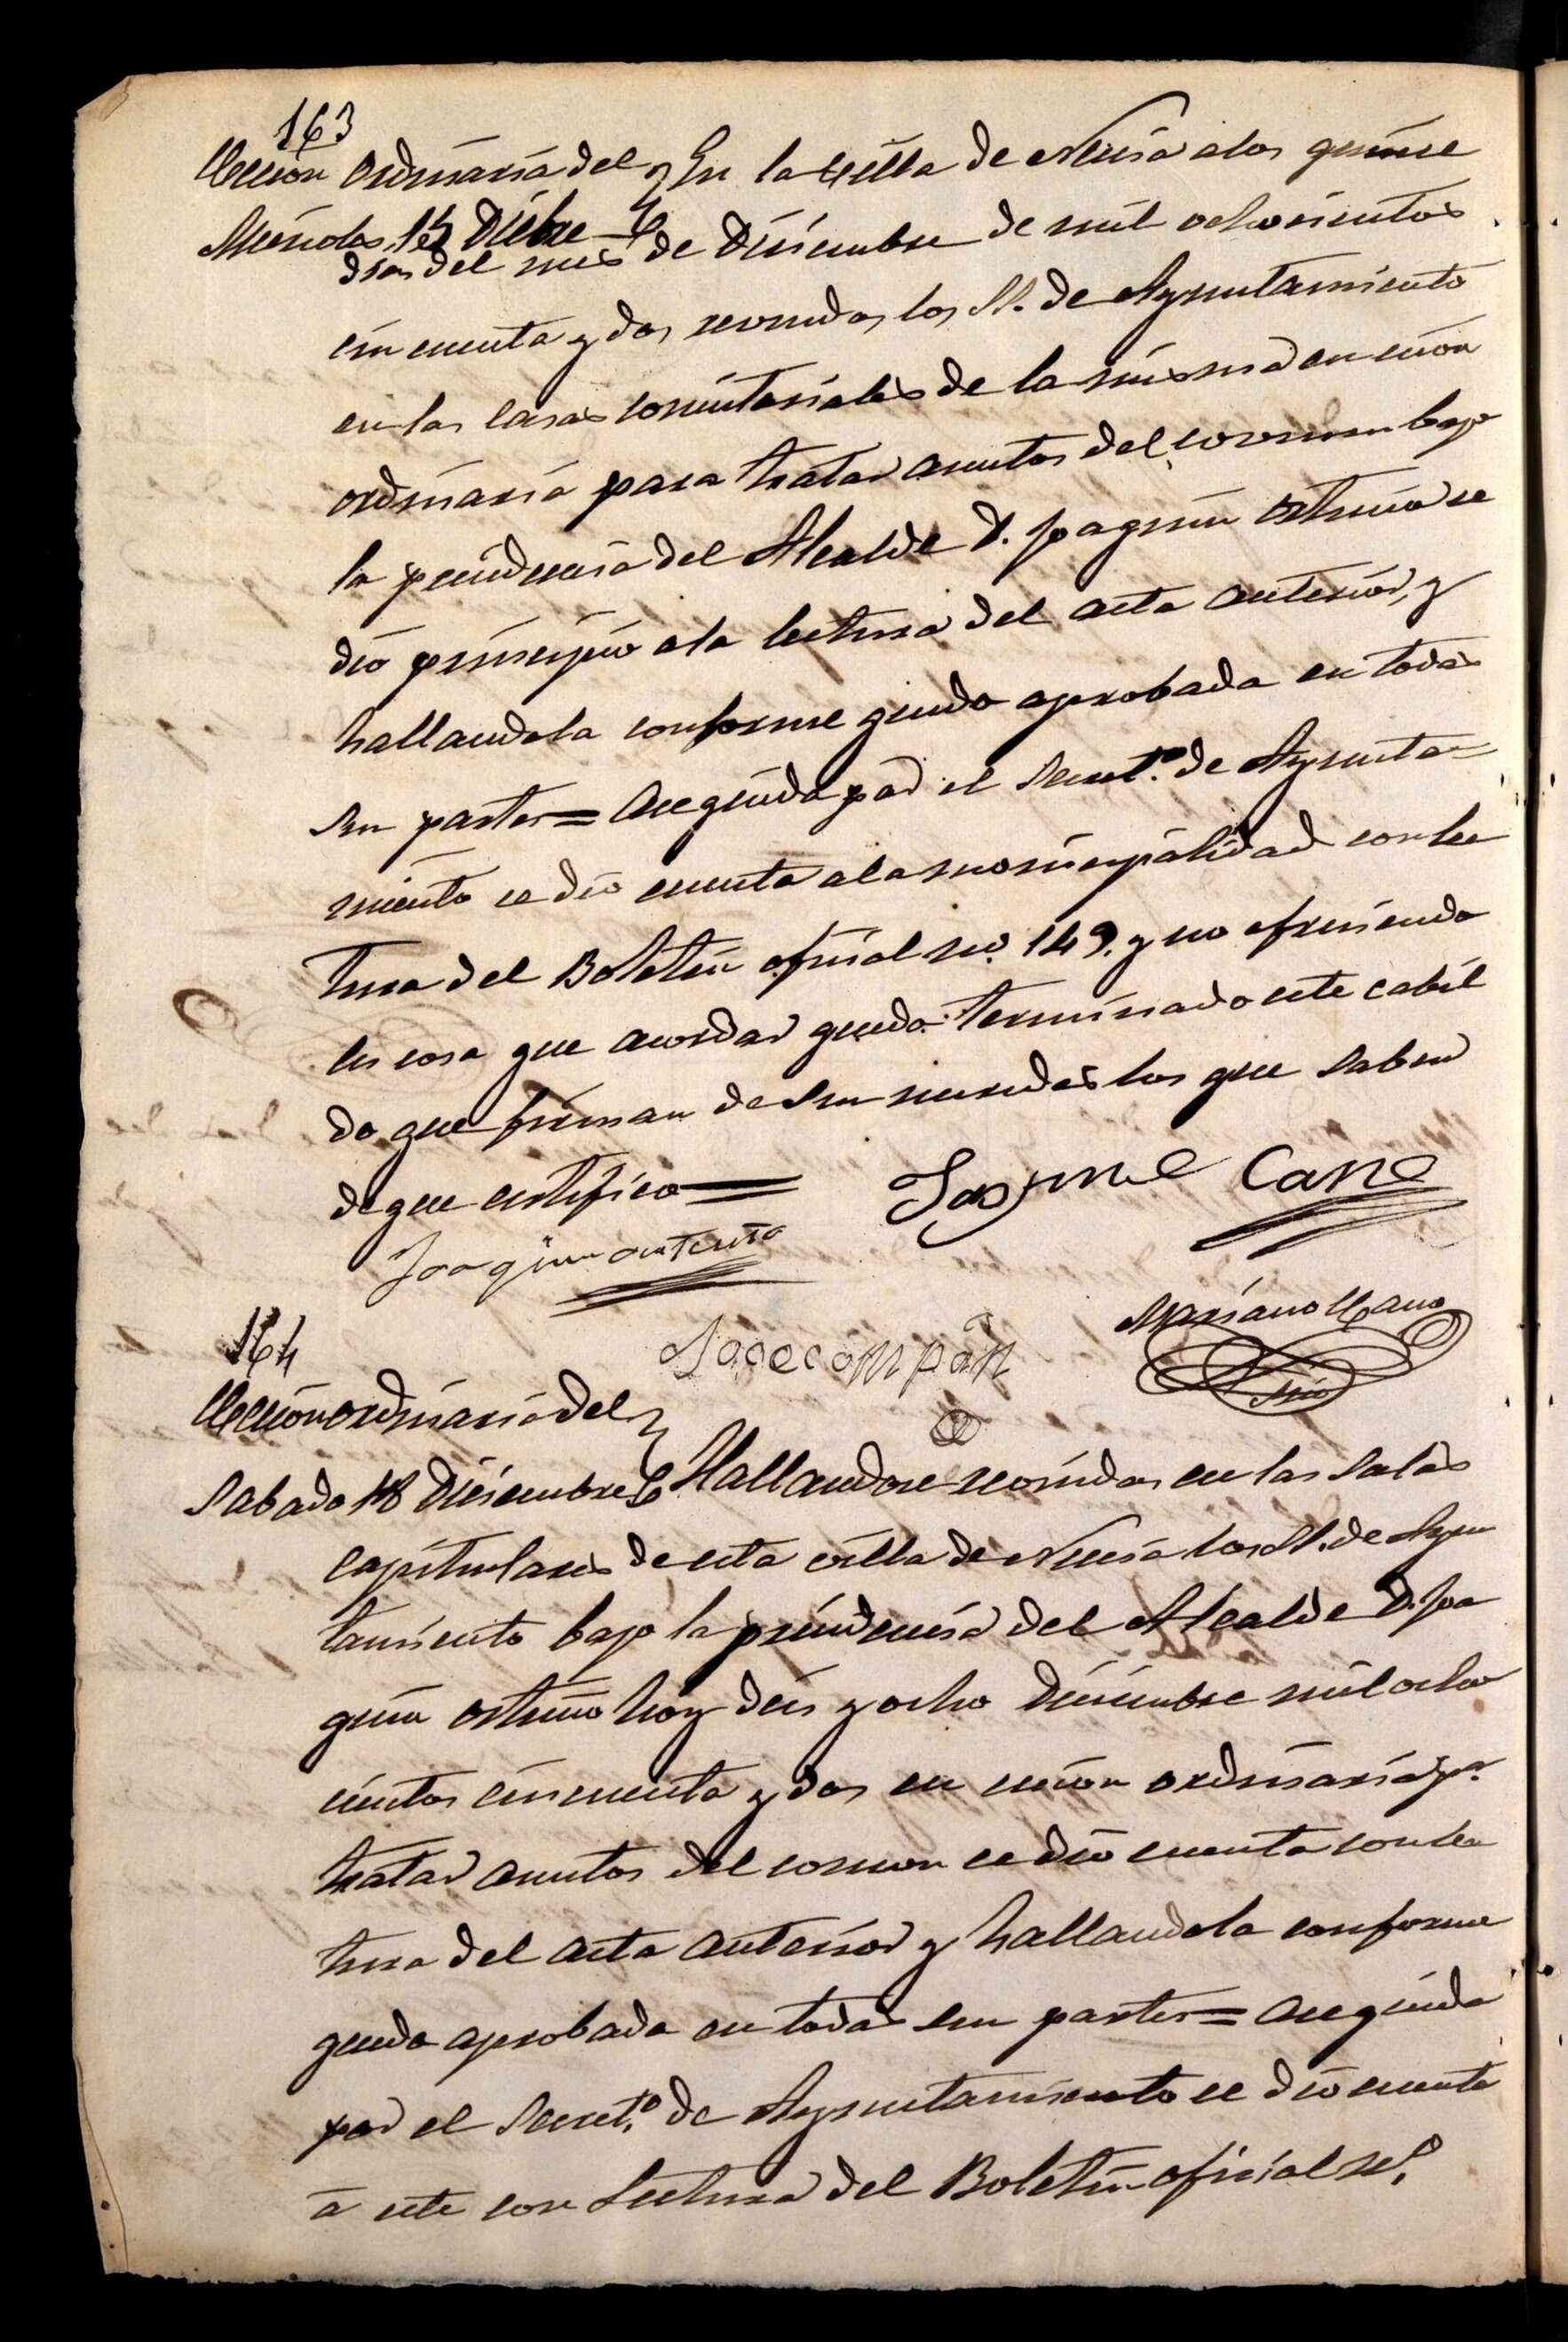 163
Cecion Ordinaria del } En la Villa de Nucia a los quinse
Miercoles 15 Dicbre }
dias del mes de Diciembre de mil ochocientos
cincuenta y dos reunidos los SS. de Ayuntamiento
en las casas consistoriales de la misma en cecion
ordinaria para tratar asuntos del comun bajo
la precidencia del Alcalde D. Joaquin se
dio principio a la lectura del acta anterior, y
hallandola conforme quedo aprobada en todas
sus partes = Aceguida por el Secret.º de Ayunta=
miento se dio cuenta a la municipalidad con lec
tura del Boletin oficial nº. 149. y no ofreciendo
les cosa que acordar quedo terminado este cabil
do que firman de sus mercedes los que saben
de que certifico =
Jayme Cano
Joaquin
Mariano Cano
Srio
Jose compañ
164
Cecion ordinaria del }
Sabado 18 Diciembre } Hallandose reunidos en las salas
capitulares de esta villa de Nucia los SS. de Ayun
tamiento bajo la precidencia del Alcalde D. Joa
quin hoy dies y ocho Diciembre mil ocho
cientos cincuenta y dos en cecion ordinaria pª.
tratar asuntos del comun se dio cuenta con lec
tura del acta anterior y hallandola conforme
quedo aprobada en todas sus partes = Aceguida
por el Secret.º de Ayuntamiento se dio cuenta
a este con Lectura del Boletin oficial nº.